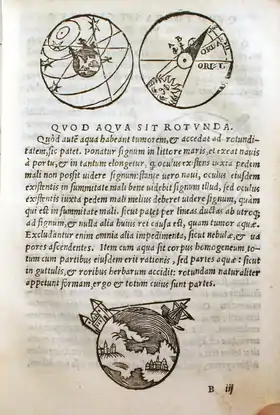 ORTV
ORIE
QVOD AQVA SIT ROTVNDA.
Quòd autē aqua habeant tumorem, & accedat ad rotundi-
tatem, sic patet. Ponatur signum in littore maris, et exeat nauis
à portu, & in tantum elongetur, q̃ oculus existens iuxta pedem
mali non possit uidere signum: stante uero naui, oculus eiusdem
existentis in summitate mali bene uidebit signum illud, sed oculus
existentis iuxta pedem mali melius deberet uidere signum, quàm
qui est in summitate mali. sicut patet per lineas ductas ab utroq;
ad signum, & nulla alia huius rei causa est, quam tumor aquæ.
Excludantur enim omnia alia impedimenta, sicut nebulæ, & ua
pores ascendentes. Item cum aqua sit corpus homogeneum to-
tum cum partibus eiusdem erit rationis, sed partes aquæ: sicut
in guttulis, & roribus herbarum accidit: rotundam naturaliter
appetunt formam, ergo & totum cuius sunt partes.
B iij